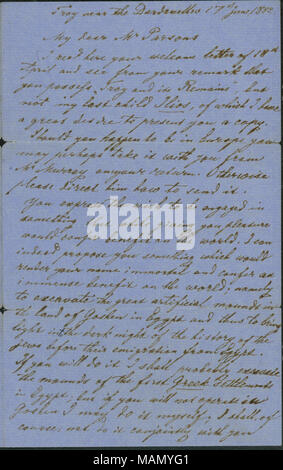 Troy near the Dardanelles 17th June 1882
My dear Mr Parsons
I rec'd here your welcome letter of 18th
April and see from your remark that
you possess "Troy and its Remains" but
not my last child Ilios, of which I have
a great desire to present you a copy.
Should you happen to be in Europe you
may perhaps take it with you from
Mr Murray on your return. Otherwise
please direct him how to send it.
You express the wish to be engaged in
something that while giving you pleasure
would confer benefit on the world. I can
indeed propose you something which would
render your name immortal and confer an
immense benefit on the world: namely
to excavate the great artificial mounds in
the land of Goshen in Egypt and thus to bring
light in the dark night of the history of the
Jews before their emigration from Egypt.
If you will do it I shall probably excavate
the mounds of the first Greek Settlements
in Egypt; but if you will not operate in
Goshen I may do it myself; I shall of
course, not do it conjointly with you
alamy
alamy stock photo
MAMYG1